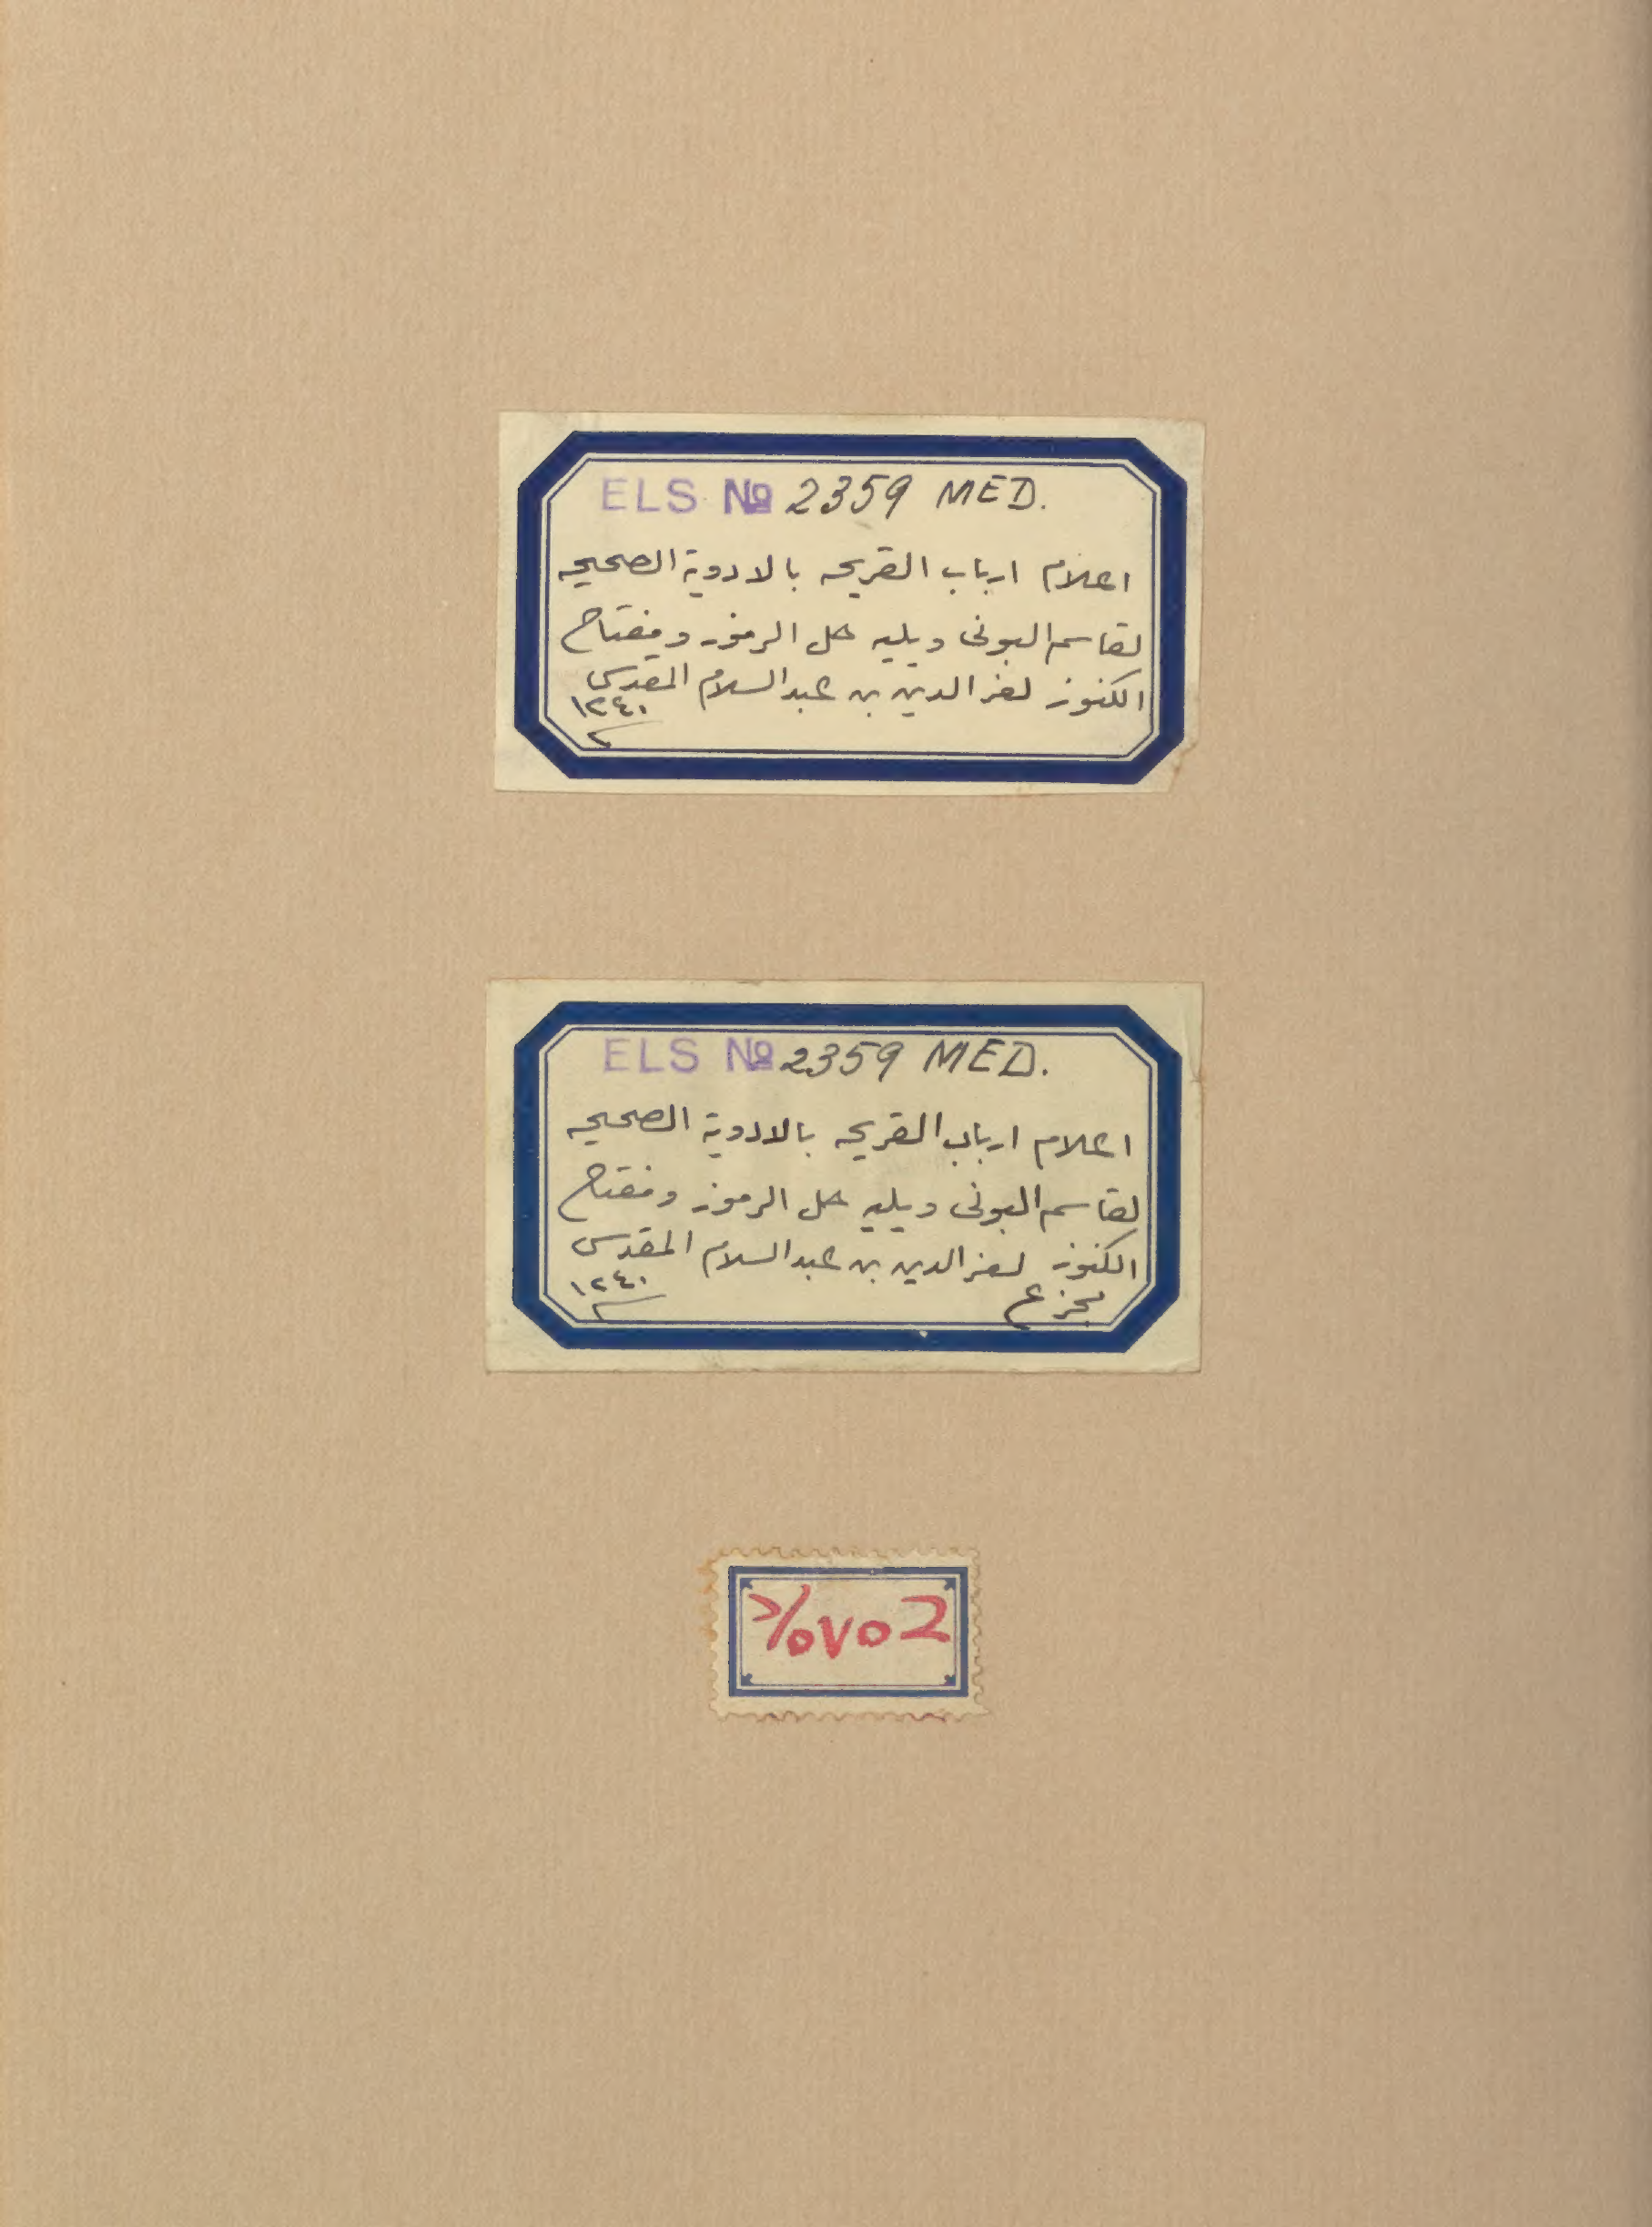 ELS No 2359 MED.
اعلام ارباب القريحه بالادوية الصحيحه
لقاسم البونى ويليه حل الرموز ومفتاح
الكنوز لعز الدين بن عبد السلام المقدسى
١٢٤٠
ELS No 2359 MED.
اعلام ارباب القريحه بالادوية الصحيحه
لقاسم البونى ويليه حل الرموز ومفتاح
الكنوز لعز الدين بن عبد السلام المقدسى
١٢٤٠